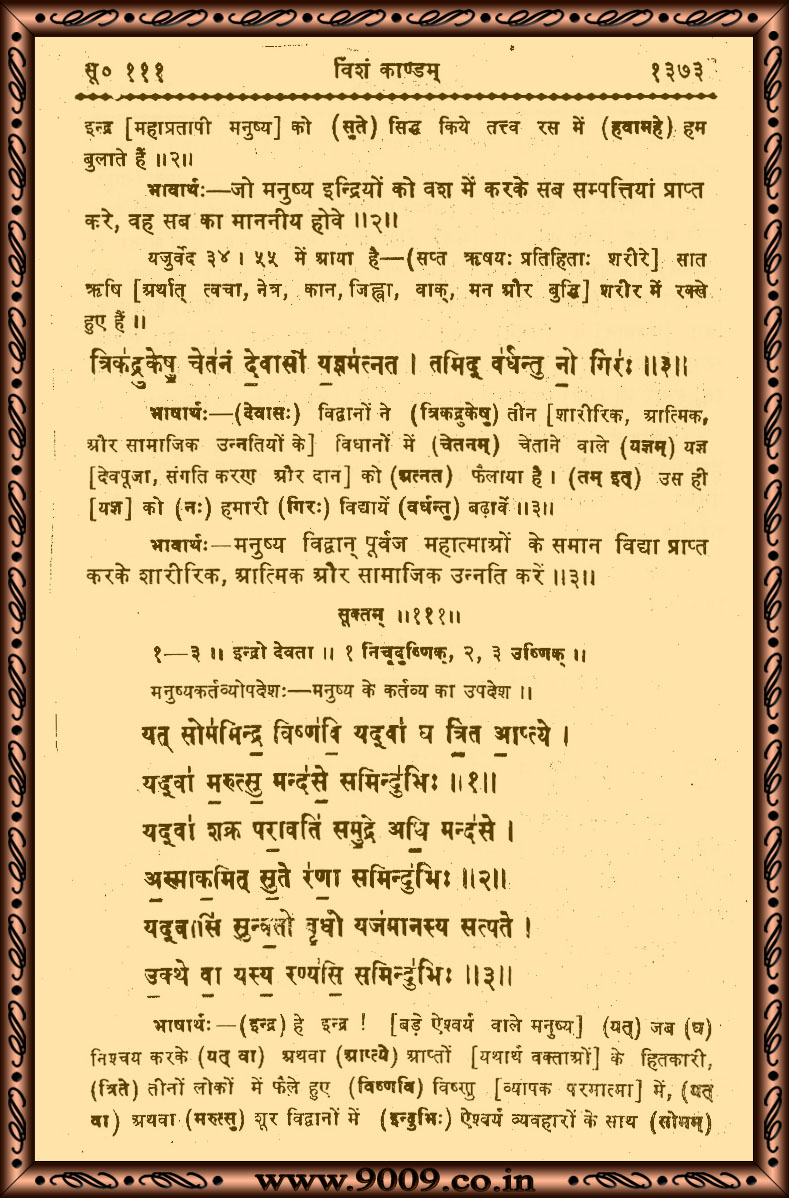 सू० १११ विंशं काण्डम् १३७३
इन्द्र [महाप्रतापी मनुष्य] को (सुते) सिद्ध किये तत्त्व रस में (हवामहे) हम
बुलाते हैं ॥२॥
भावार्थः—जो मनुष्य इन्द्रियों को वश में करके सब सम्पत्तियां प्राप्त
करे, वह सब का माननीय होवे ॥२॥
यजुर्वेद ३४ । ५५ में आया है—(सप्त ऋषयः प्रतिहिताः शरीरे] सात
ऋषि [अर्थात् त्वचा, नेत्र, कान, जिह्वा, वाक्, मन और बुद्धि] शरीर में रक्खे
हुए हैं ॥
त्रिक॑द्रुकेषु॒ चेत॑नं दे॒वासो॑ य॒ज्ञम॑त्नत । तमिद् व॑र्धन्तु नो॒ गिरः॑ ॥३॥
भाषार्थः—(देवासः) विद्वानों ने (त्रिकद्रुकेषु) तीन [शारीरिक, आत्मिक,
और सामाजिक उन्नतियों के] विधानों में (चेतनम्) चेताने वाले (यज्ञम्) यज्ञ
[देवपूजा, संगति करण और दान] को (अत्नत) फैलाया है । (तम् इत्) उस ही
[यज्ञ] को (नः) हमारी (गिरः) विद्यायें (वर्धन्तु) बढ़ावें ॥३॥
भावार्थः—मनुष्य विद्वान् पूर्वज महात्माओं के समान विद्या प्राप्त
करके शारीरिक, आत्मिक और सामाजिक उन्नति करें ॥३॥
सूक्तम् ॥१११॥
१—३ ॥ इन्द्रो देवता ॥ १ निचृदुष्णिक्, २, ३ उष्णिक् ॥
मनुष्यकर्तव्योपदेशः—मनुष्य के कर्तव्य का उपदेश ॥
यत् सोम॑मिन्द्र॒ विष्ण॑वि॒ यद्वा॑ घ त्रि॒त आ॒प्त्ये ।
यद्वा॑ म॒रुत्सु॒ मन्द॑से॒ समिन्दु॑भिः ॥१॥
यद्वा॑ शक्र परा॒वति॑ समु॒द्रे अधि॒ मन्द॑से ।
अ॒स्माक॒मित् सु॒ते र॑णा॒ समिन्दु॑भिः ॥२॥
यद्वासि॑ सुन्व॒तो वृ॒धो यज॑मानस्य सत्पते ।
उ॒क्थे वा॒ यस्य॒ रण्य॑सि॒ समिन्दु॑भिः ॥३॥
भाषार्थः—(इन्द्र) हे इन्द्र ! [बड़े ऐश्वर्य वाले मनुष्य] (यत्) जब (घ)
निश्चय करके (यत् वा) अथवा (आप्त्ये) आप्तों [यथार्थ वक्ताओं] के हितकारी,
(त्रिते) तीनों लोकों में फैले हुए (विष्णवि) विष्णु [व्यापक परमात्मा] में, (यत्
वा) अथवा (मरुत्सु) शूर विद्वानों में (इन्दुभिः) ऐश्वर्य व्यवहारों के साथ (सोमम्)
www.9009.co.in